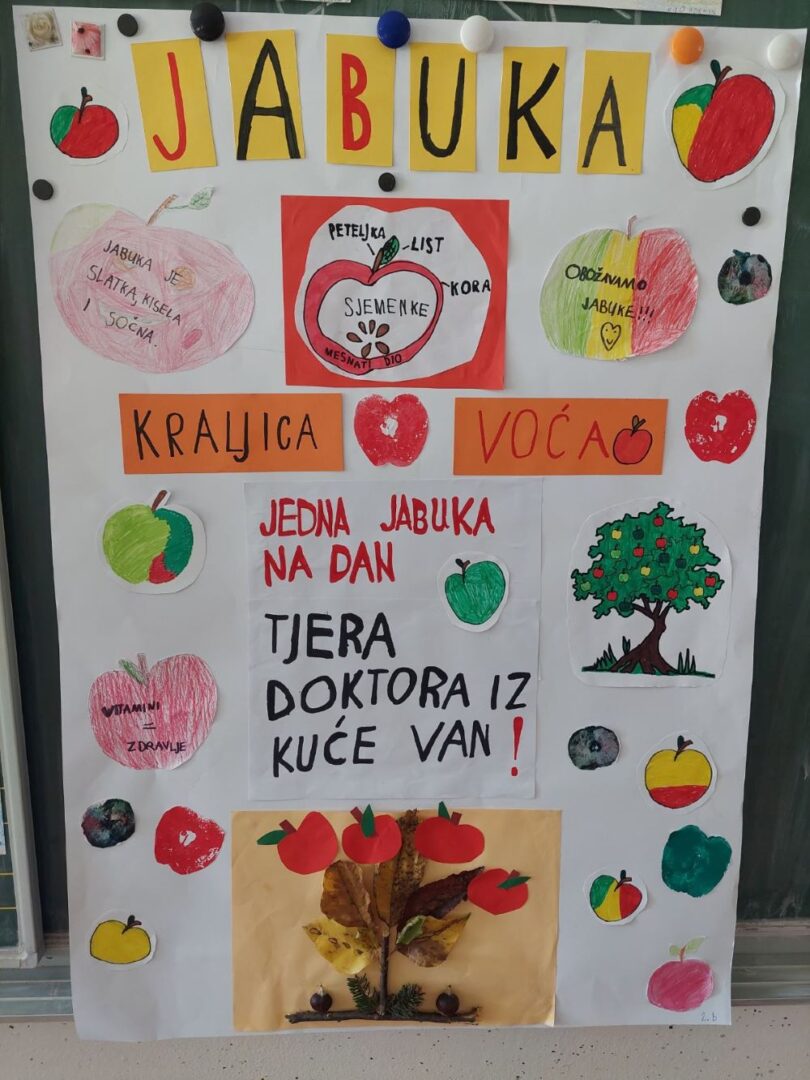 JABUKA
JABUKA JE
SLATKA, KISELA
I SOČNA.
PETELJKA
LIST
KORA
SJEMENKE
MESNATI DIO
OBOŽAVAMO
JABUKE!!!
KRALJICA
VOĆA
JEDNA JABUKA
NA DAN
TJERA
DOKTORA IZ
KUĆE VAN!
VITAMINI
=
ZDRAVLJE
2.b